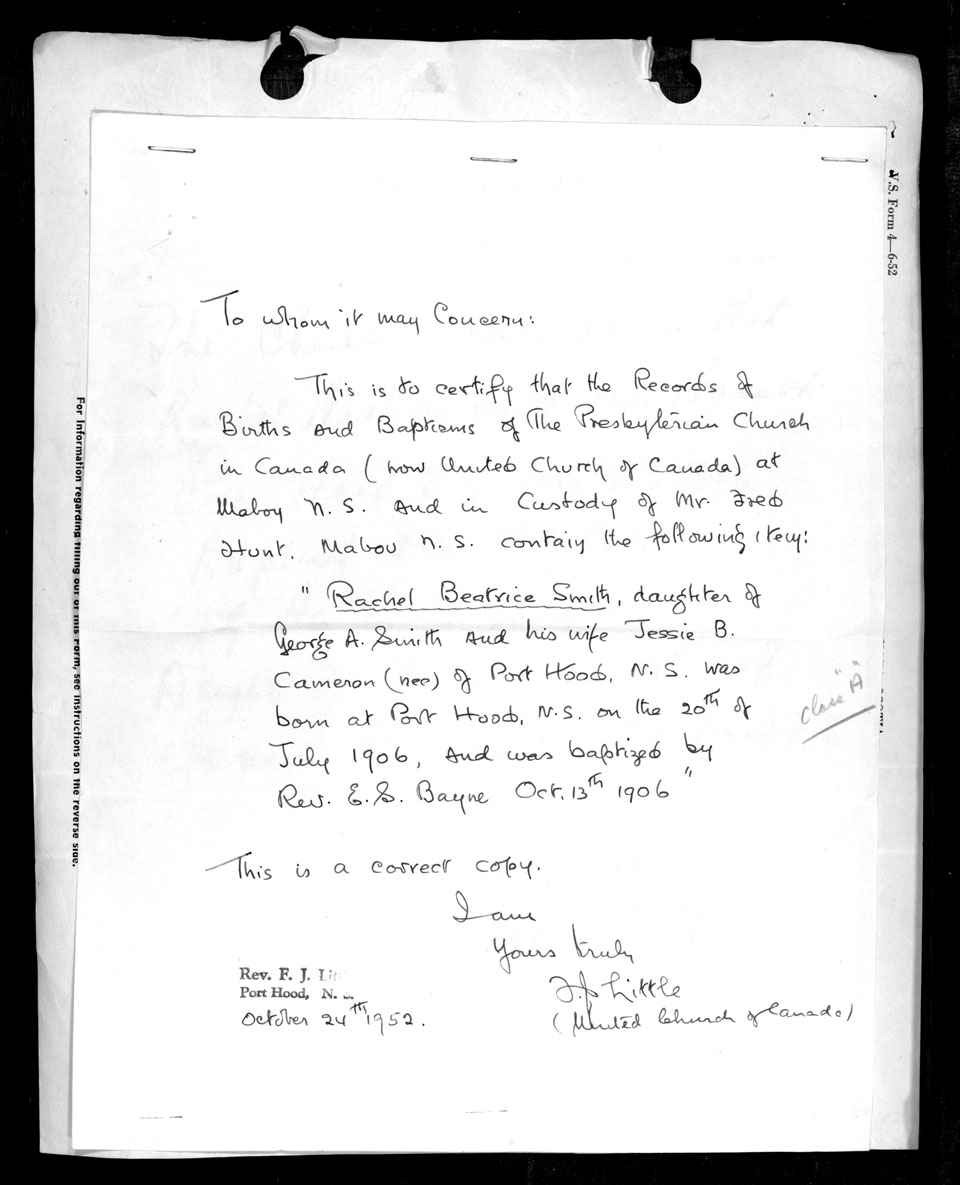 V.S. Form 4—6-52
To whom it may Concern:
This is to certify that the Records of
Births and Baptisms of The Presbyterian Church
in Canada (now United Church of Canada) at
Mabou N. S. and in Custody of Mr. Fred
Hunt. Mabou N. S. contain the following item:
" Rachel Beatrice Smith, daughter of
George A. Smith and his wife Jessie B.
Cameron (nee) of Port Hood, N. S. was
born at Port Hood, N.S. on the 20th of
July 1906, and was baptized by
Rev. E. S. Bayne Oct. 13th 1906 "
Class "A"
This is a correct copy.
I am
Yours truly
F. J. Little
(United Church of Canada)
Rev. F. J. Lit
Port Hood, N. S.
October 24th 1952.
For Information regarding filling out of this Form, see instructions on the reverse side.